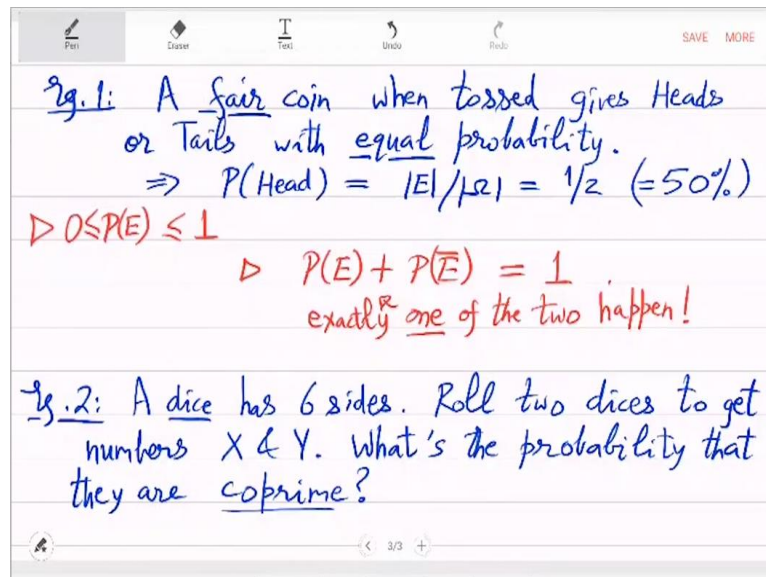 Pen Eraser Text Undo Redo SAVE MORE
Eg.1: A fair coin when tossed gives Heads
or Tails with equal probability.
⇒ P(Head) = |E|/|Ω| = 1/2 (=50%)
▷ 0≤P(E) ≤ 1
▷ P(E) + P(E̅) = 1.
exactly one of the two happen!
Eg.2: A dice has 6 sides. Roll two dices to get
numbers X & Y. What's the probability that
they are coprime?
3/3